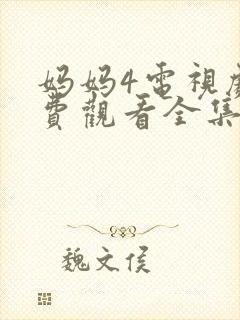 妈妈4电視
費觀看全集
魏文侯